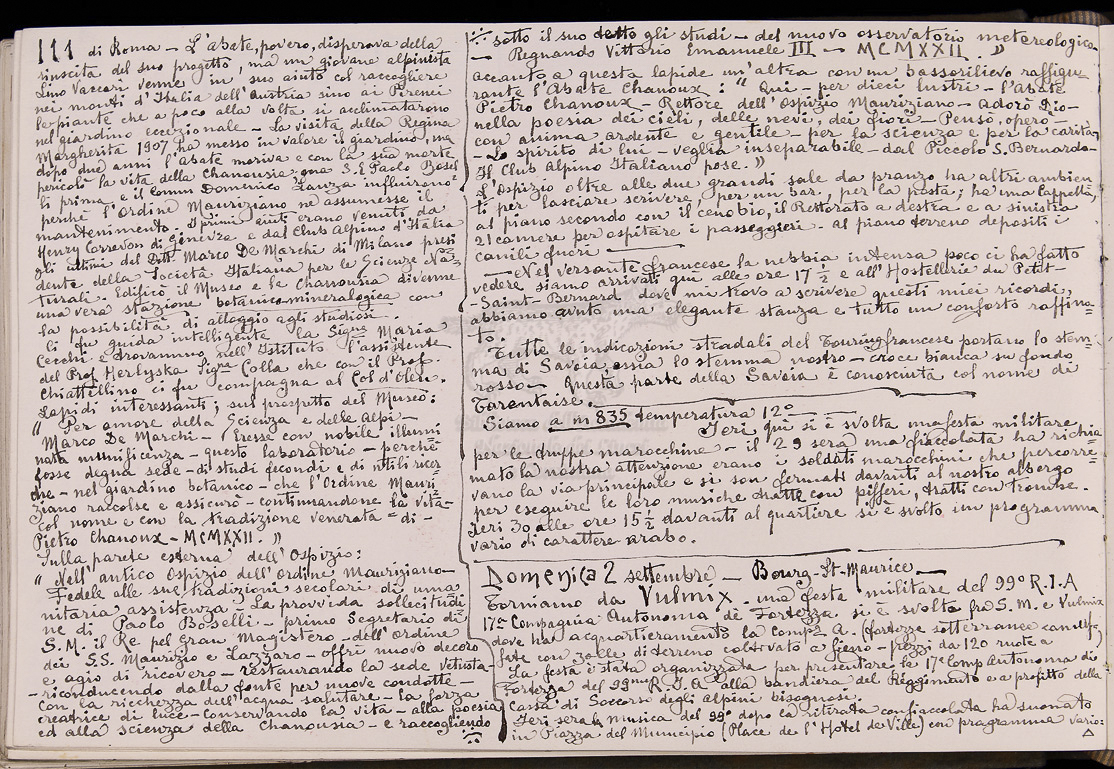 111 di Roma - L'abate, povero, disperava della
riuscita del suo progetto, ma un giovane alpinista
Lino Vaccari venne in suo aiuto col raccogliere
nei monti d'Italia dell'Austria sino ai Pirenei
le piante che a poco alla volta si acclimatarono
nel giardino eccezionale - La visita della Regina
Margherita 1907 ha messo in valore il giardino, ma
dopo due anni l'abate moriva e con la sua morte
pericolò la vita della Chanousia; ma S. E Paolo Bosel
li prima, e il Comm Domenico Zanza influirono
perchè l'Ordine Mauriziano ne assumesse il
mantenimento. I primi aiuti erano venuti da
Henry Correvon di Ginevra e dal Club alpino d'Italia
gli ultimi del Dott Marco De Marchi di Milano presi
dente della Società Italiana per le Scienze Na=
turali. Edificò il Museo e la Chanousia divenne
una vera stazione botanico-mineralogica con
la possibilità di alloggio agli studiosi.
Ci fu guida intelligente la Signa Maria
Cecchi e trovammo nell'Istituto l'assistente
del Prof Herlyska Signa Colla che con il Prof
Chiattellino ci fu compagna al Col d'Olen.
Lapidi interessanti; sul prospetto del Museo:
" Per amore della Scienza e delle Alpi -
Marco De Marchi - Eresse con nobile illumi
nata munificenza - questo laboratorio - perchè
fosse degna sede - di studi fecondi e di utili ricer
che - nel giardino botanico - che l'Ordine Mauri=
ziano raccolse e assicurò - continuandone la vita -
Col nome e con la tradizione venerata - di -
Pietro Chanoux - MCMXXII. "
Sulla parete esterna dell'Ospizio:
" Nell'antico Ospizio dell'Ordine Mauriziano -
Fedele alle sue tradizioni secolari di uma
nitaria assistenza - La provvida sollecitudi
ne di Paolo Boselli - primo Segretario di
S. M. il Re pel Gran Magistero - dell'Ordine
dei S.S. Maurizio e Lazzaro - offrì nuovo decoro
e agio di ricovero - restaurando la sede vetusta -
- riconducendo dalla fonte per nuove condotte -
con la ricchezza dell'acqua salutare - la forza
creatrice di luce - conservando la vita - alla poesia
ed alla scienza della Chanousia - e raccogliendo
sotto il suo tetto gli studi - del nuovo osservatorio metereologico
- Regnando Vittorio Emanuele III - MCMXXII. "
accanto a questa lapide un'altra con un bassorilievo raffigu
rante l'Abate Chanoux: " Qui - per dieci lustri - l'Abate
Pietro Chanoux - Rettore dell'Ospizio Mauriziano - Adorò Dio -
nella poesia dei cieli, delle nevi, dei fiori - Pensò, operò -
con anima ardente e gentile - per la scienza e per la carità -
- Lo spirito di lui - veglia inseparabile - dal Piccolo S. Bernardo -
Il Club Alpino Italiano pose. "
L'Ospizio oltre alle due grandi sale da pranzo ha altri ambien
ti per lasciare scrivere, per un bar, per la posta; ha una Cappella
al piano secondo con il cenobio, il Rettorato a destra e a sinistra
21 camere per ospitare i passeggieri. Al piano terreno depositi i
canili fuori
- Nel versante francese la nebbia intensa poco ci ha fatto
vedere siamo arrivati qui alle ore 17 1/2 e all'Hostellerie du Petit -
- Saint-Bernard dove mi trovo a scrivere questi miei ricordi,
abbiamo avuto una elegante stanza e tutto un conforto raffina=
to.
Tutte le indicazioni stradali del Touring francese portano lo stem=
ma di Savoia, ossia lo stemma nostro - croce bianca su fondo
rosso - Questa parte della Savoia è conosciuta col nome di
Tarentaise.
Siamo a m 835 temperatura 12°
Ieri qui si è svolta una festa militare
per le truppe marocchine - il 29 sera una fiaccolata ha richia
mato la nostra attenzione erano i soldati marocchini che percorre=
vano la via principale e si son fermati davanti al nostro albergo
per eseguire le loro musiche tratte con pifferi, tratti con trombe.
Ieri 30 alle ore 15 1/2 davanti al quartiere si è svolto un programma
vario di carattere arabo.
Domenica 2 settembre - Bourg-St-Maurice -
Torniamo da Vulmix una festa militare del 99° R.I.A
17a Compagnia Autonoma de Fortezza si è svolta fra S. M. e Vulmix
dove ha acquartieramento la Compa A. (fortezze sotterranee camuf
fate con zolle di terreno coltivato a fieno - pezzi da 120 ruote a
La festa è stata organizzata per presentare la 17a Comp Autonoma di
Fortezza del 99mo R.I.A alla bandiera del Reggimento e a profitto della
Cassa di Soccorso degli Alpini bisognosi.
Ieri sera la musica del 99° dopo la ritirata con fiaccolata ha suonato
in Piazza del Municipio (Place de l'Hôtel de Ville) con programma vario: